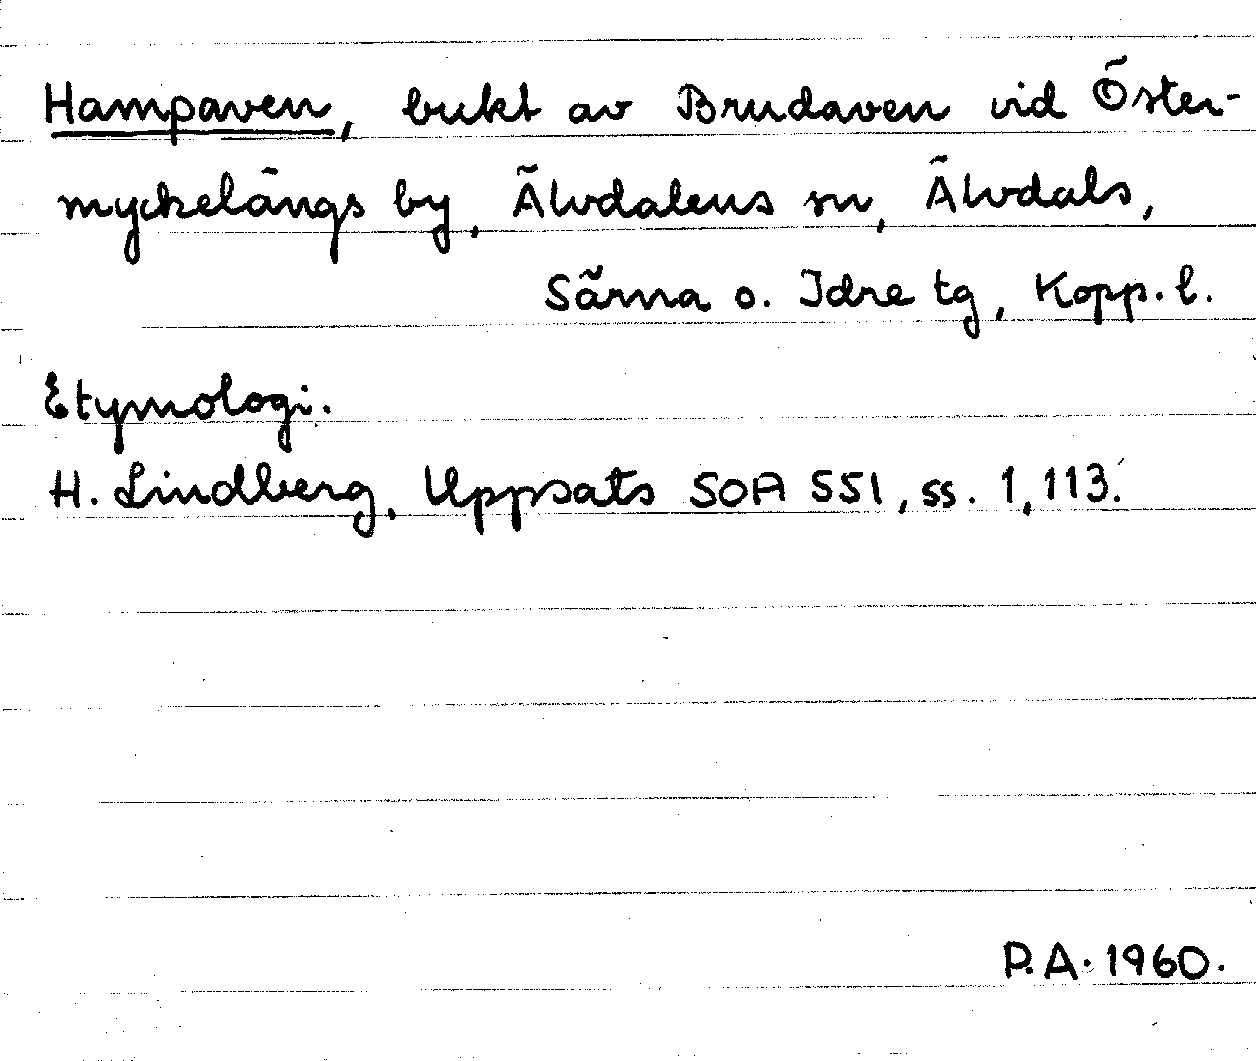 Hampaven, bukt av Brudaven vid Öster-
myckelängs by, Älvdalens sn, Älvdals,
Särna o. Idre tg, Kopp. l.
Etymologi.
H. Lindberg, Uppsats SOA 551, ss. 1, 113.
P.A. 1960.